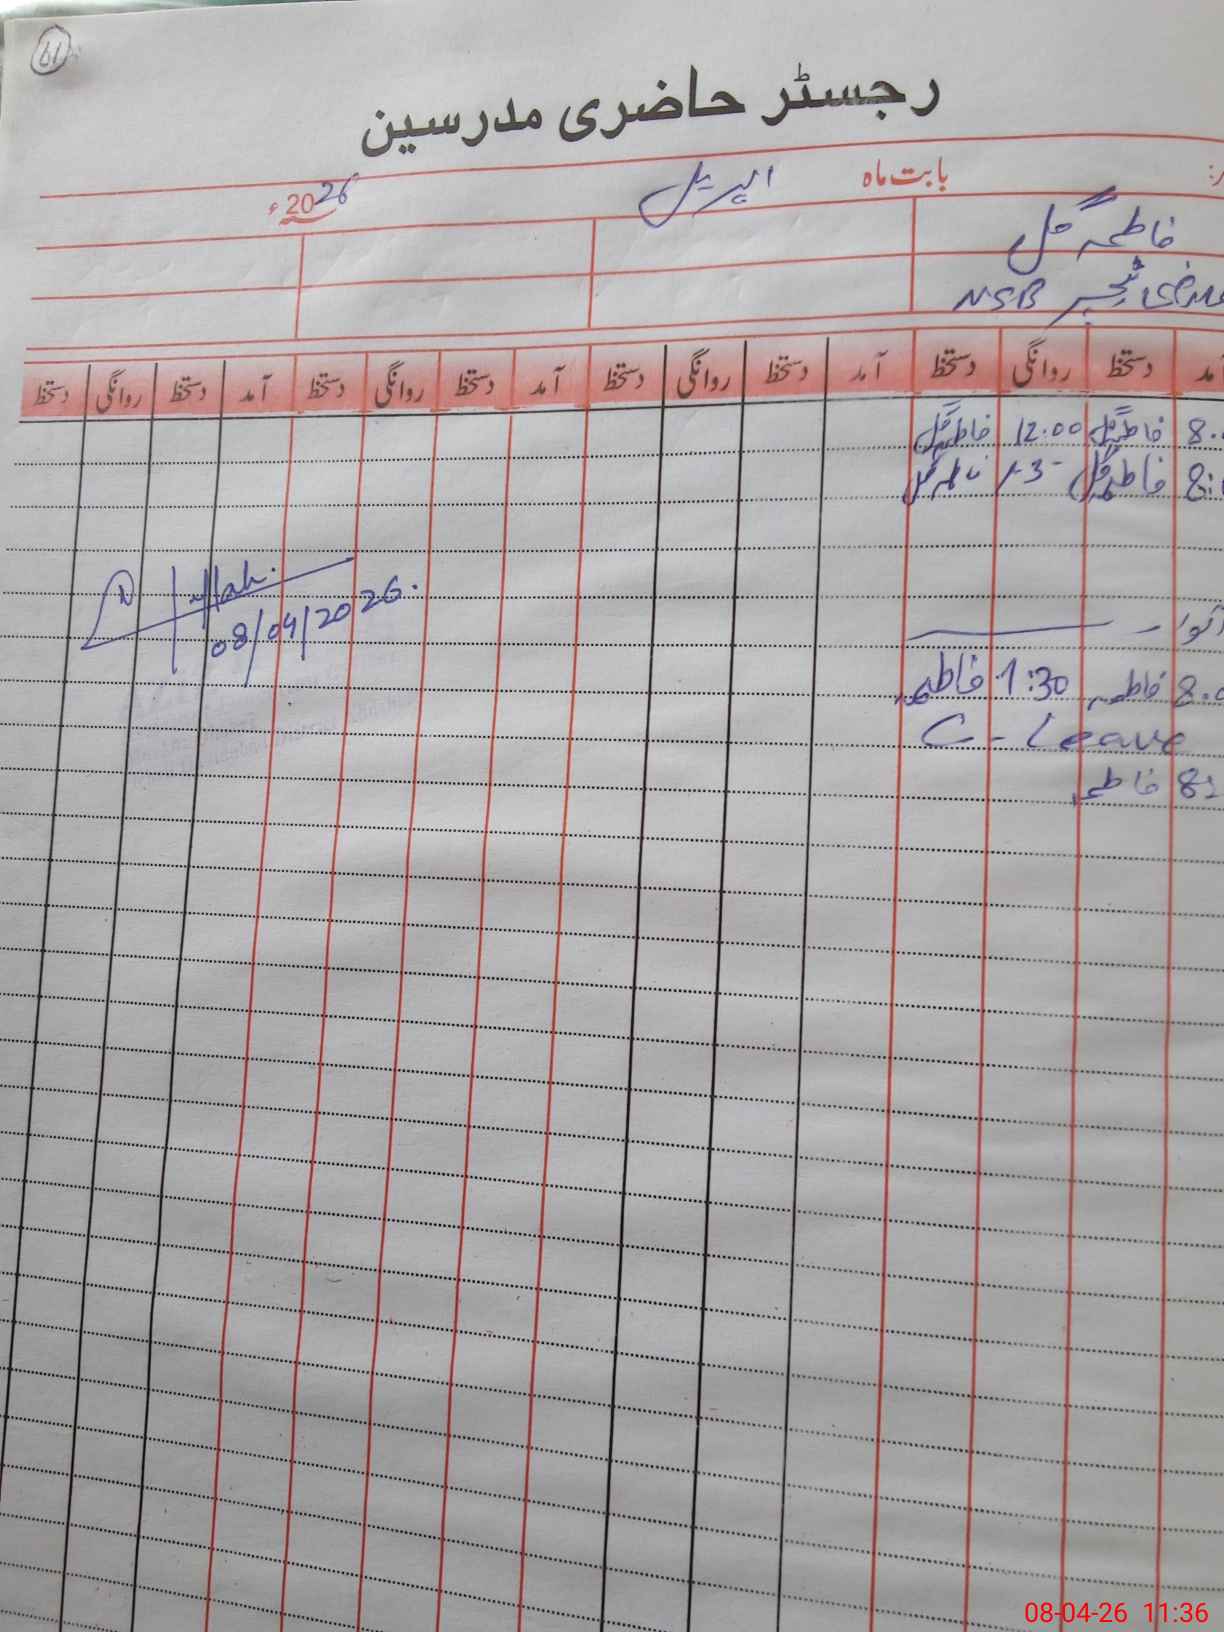 61
رجسٹر حاضری مدرسین
بابت ماہ اپریل 2026ء
فاطمہ گل
عارضی ٹیچر NSB
آمد دستخط روانگی دستخط آمد دستخط روانگی دستخط آمد دستخط روانگی دستخط آمد دستخط روانگی دستخط
فاطمہ گل 12.00 فاطمہ گل
فاطمہ گل فاطمہ گل
08/04/2026.
اتوار
فاطمہ 1:30 فاطمہ
C-Leave
فاطمہ
08-04-26 11:36